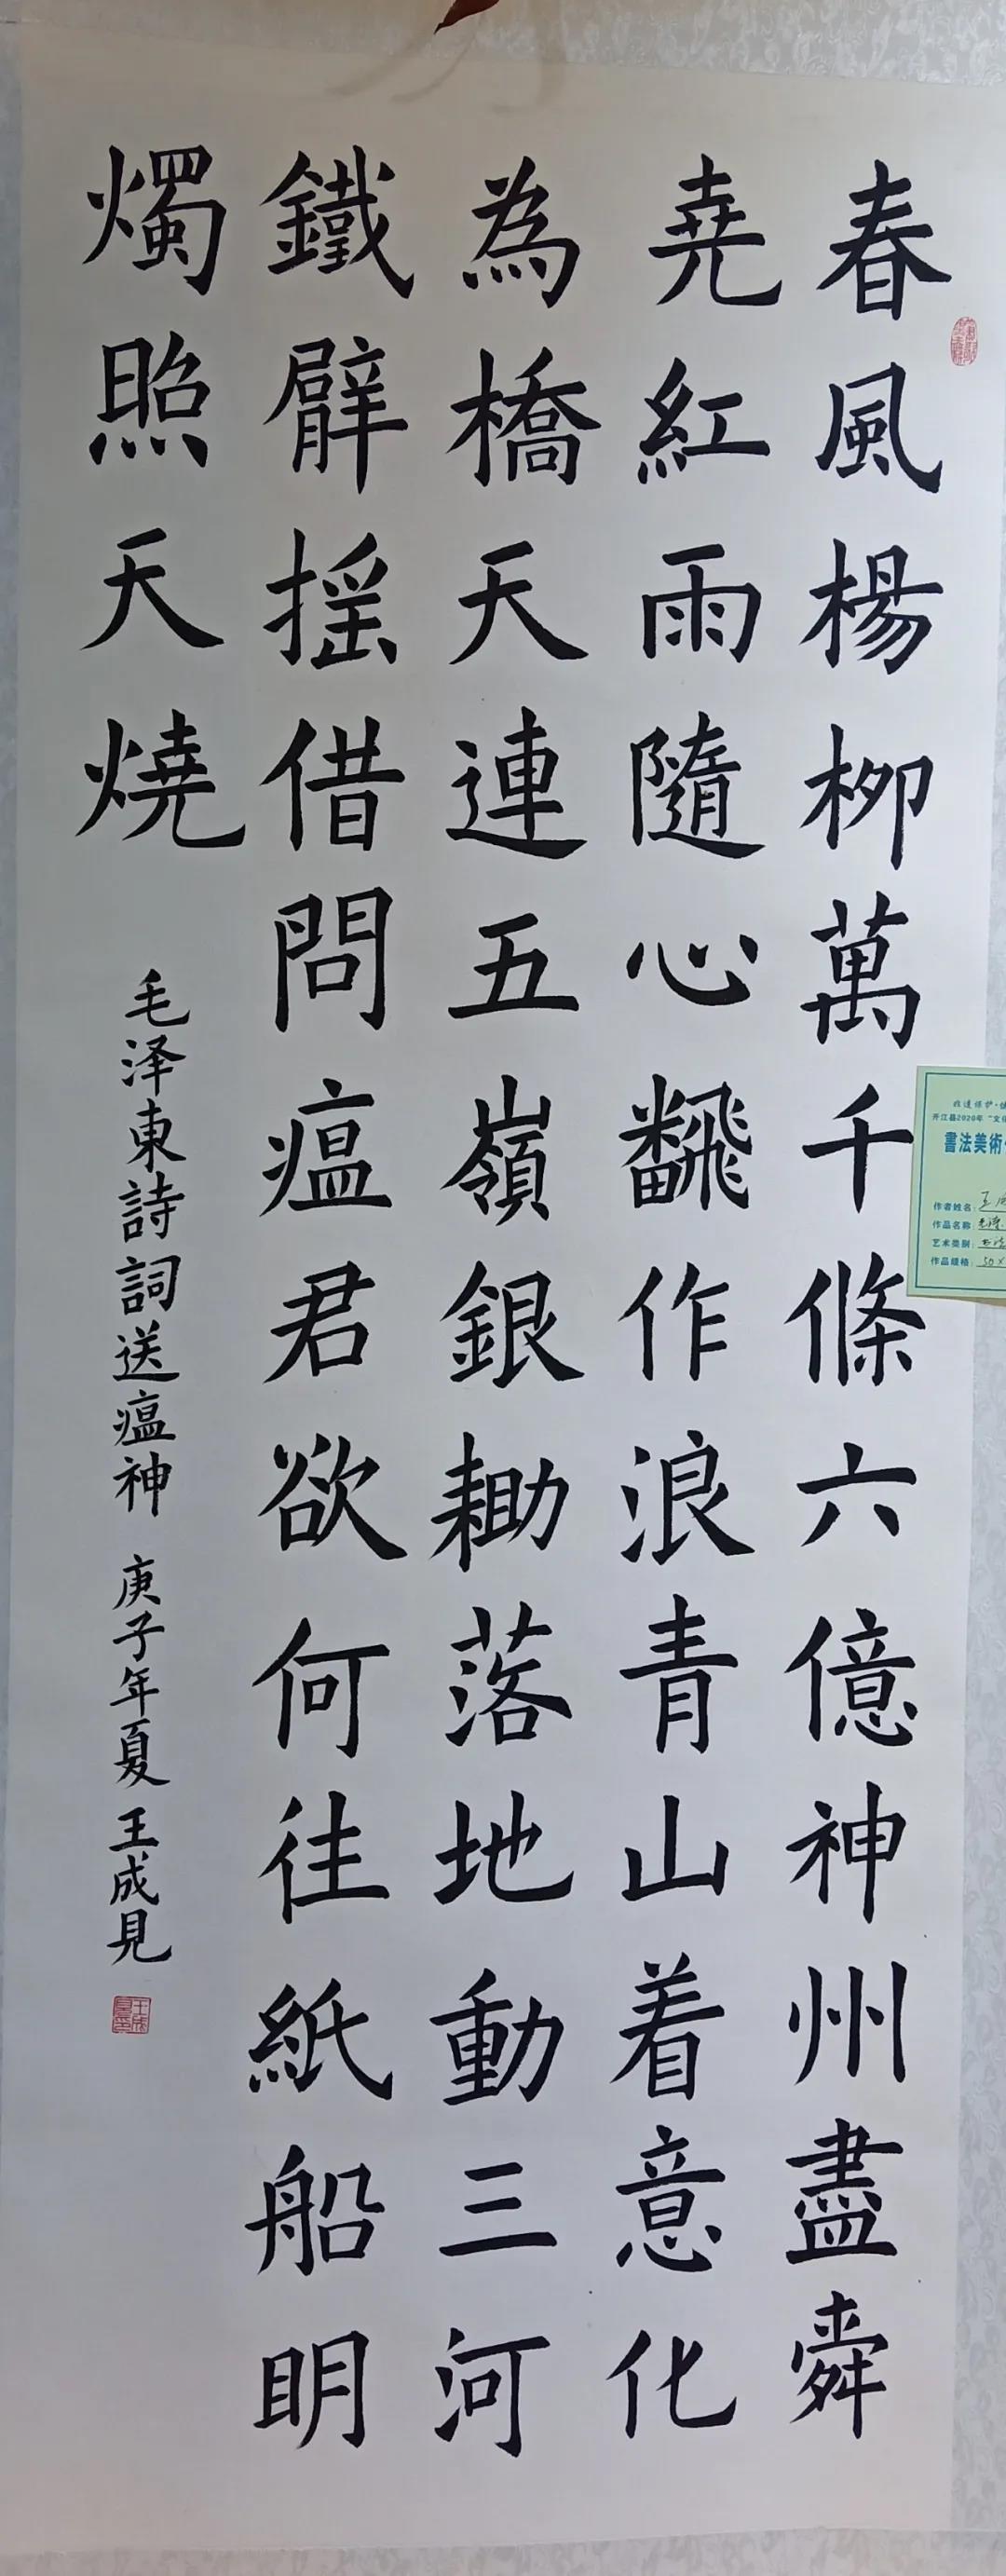 春風楊柳萬千條六億神州盡舜
堯紅雨隨心飜作浪青山着意化
為橋天連五嶺銀耡落地動三河
鐵臂摇借問瘟君欲何徃紙船眀
燭照天燒
毛泽東詩詞送瘟神 庚子年夏 王成見
非遗保护·
开江县2020年“文
書法美術
作者姓名: 王
作品名称:
艺术类别:
作品规格: 50×